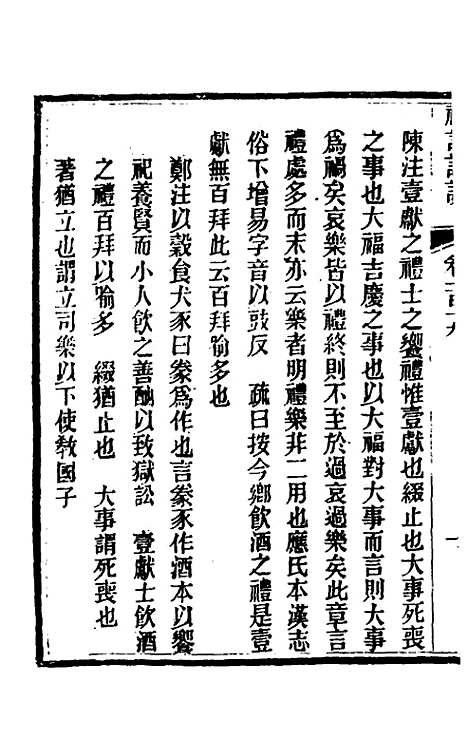 陳注壹獻之禮士之饗禮惟壹獻也綴止也大事死喪
之事也大福吉慶之事也以大福對大事而言則大事
爲禍矣哀樂皆以禮終則不至於過哀過樂矣此章言
禮處多而末亦云樂者明禮樂非二用也應氏本漢志
俗下增易字音以豉反　疏曰按今鄉飮酒之禮是壹
獻無百拜此云百拜喻多也
鄭注以穀食犬豕曰豢爲作也言豢豕作酒本以饗
祀養賢而小人飮之善酗以致獄訟　壹獻士飮酒
之禮百拜以喻多　綴猶止也　大事謂死喪也
著猶立也謂立司樂以下使敎國子